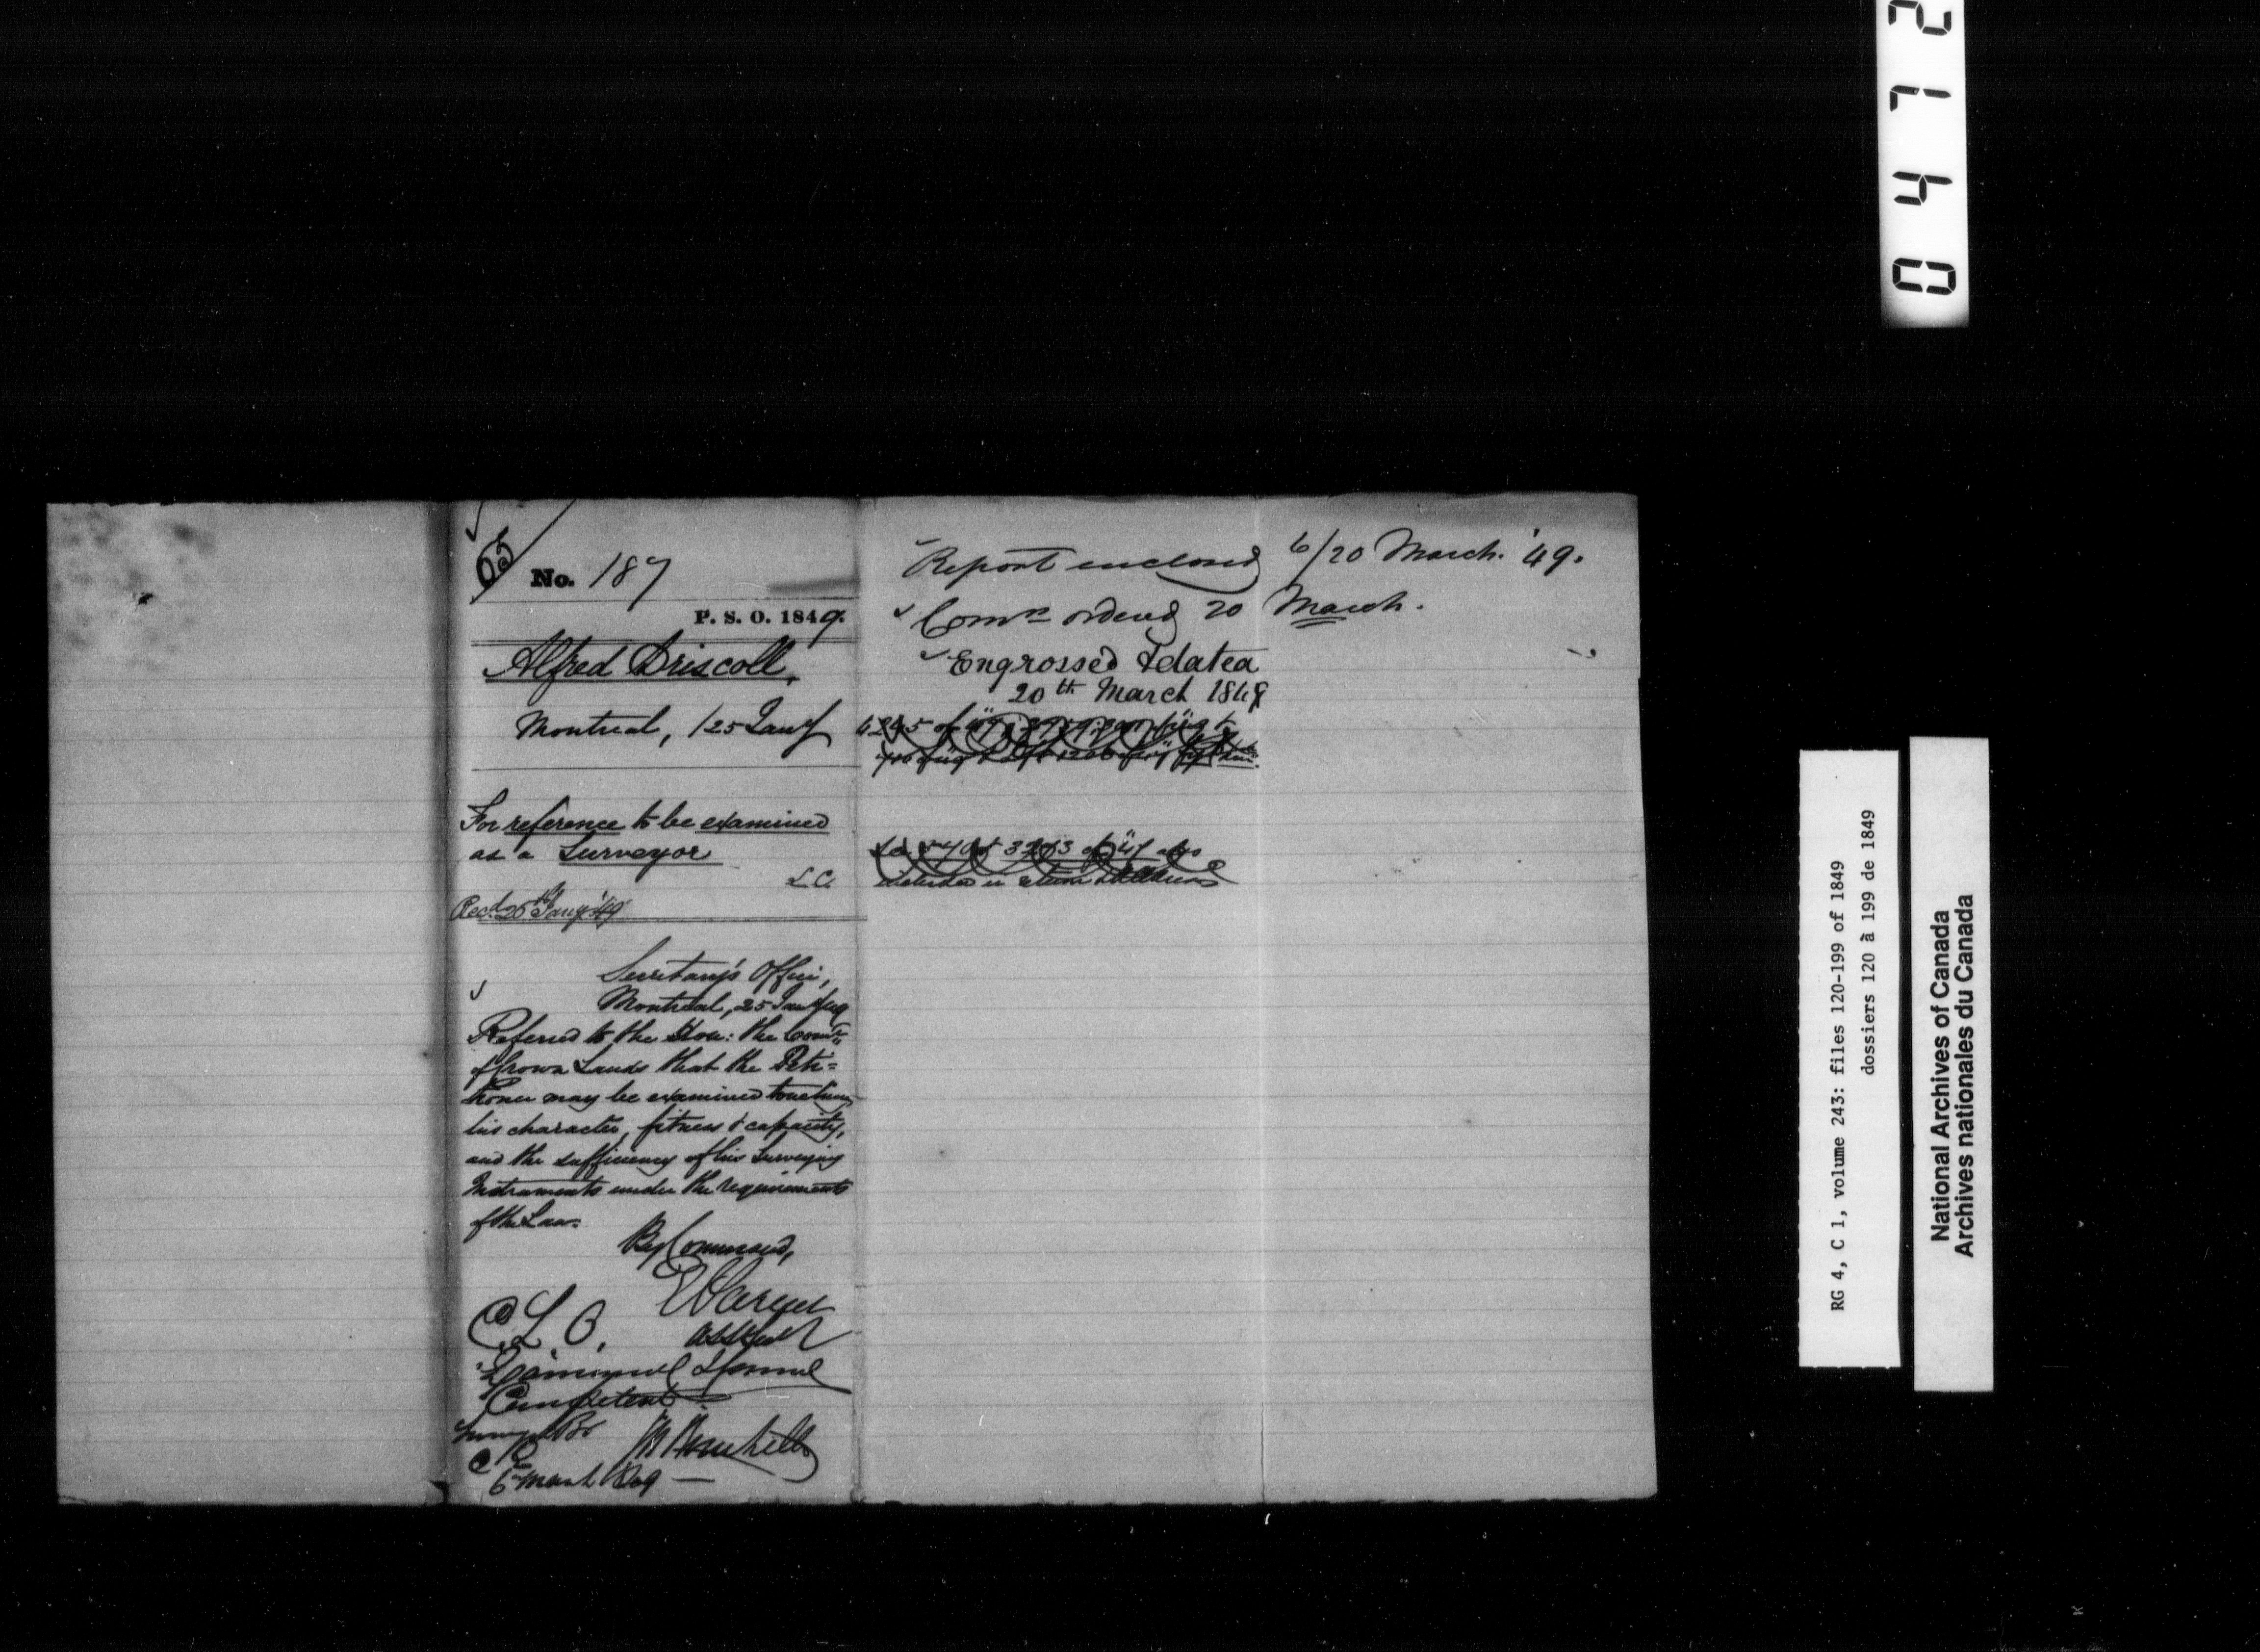 65
No. 187
P. S. O. 1849.
Alfred Driscoll,
Montreal, 25 Jany
For reference to be examined
as a Surveyor
L.C.
Recd. 25th Jany '49
Secretary's Office,
Montreal, 25 Jany '49
Referred to the Hon: the Comr.
of Crown Lands that the Peti=
tioner may be examined touching
his character, fitness & capacity,
and the sufficiency of his Surveying
Instruments under the requirements
of the Law.
By Command,
C. L. O.
Examined & found
Competent
6th March 1849
Report enclosed 6/20 March. '49.
Comn ordered 20 March.
Engrossed & dated
20th March 1849
0472
RG 4, C 1, volume 243: files 120-199 of 1849
dossiers 120 à 199 de 1849
National Archives of Canada
Archives nationales du Canada